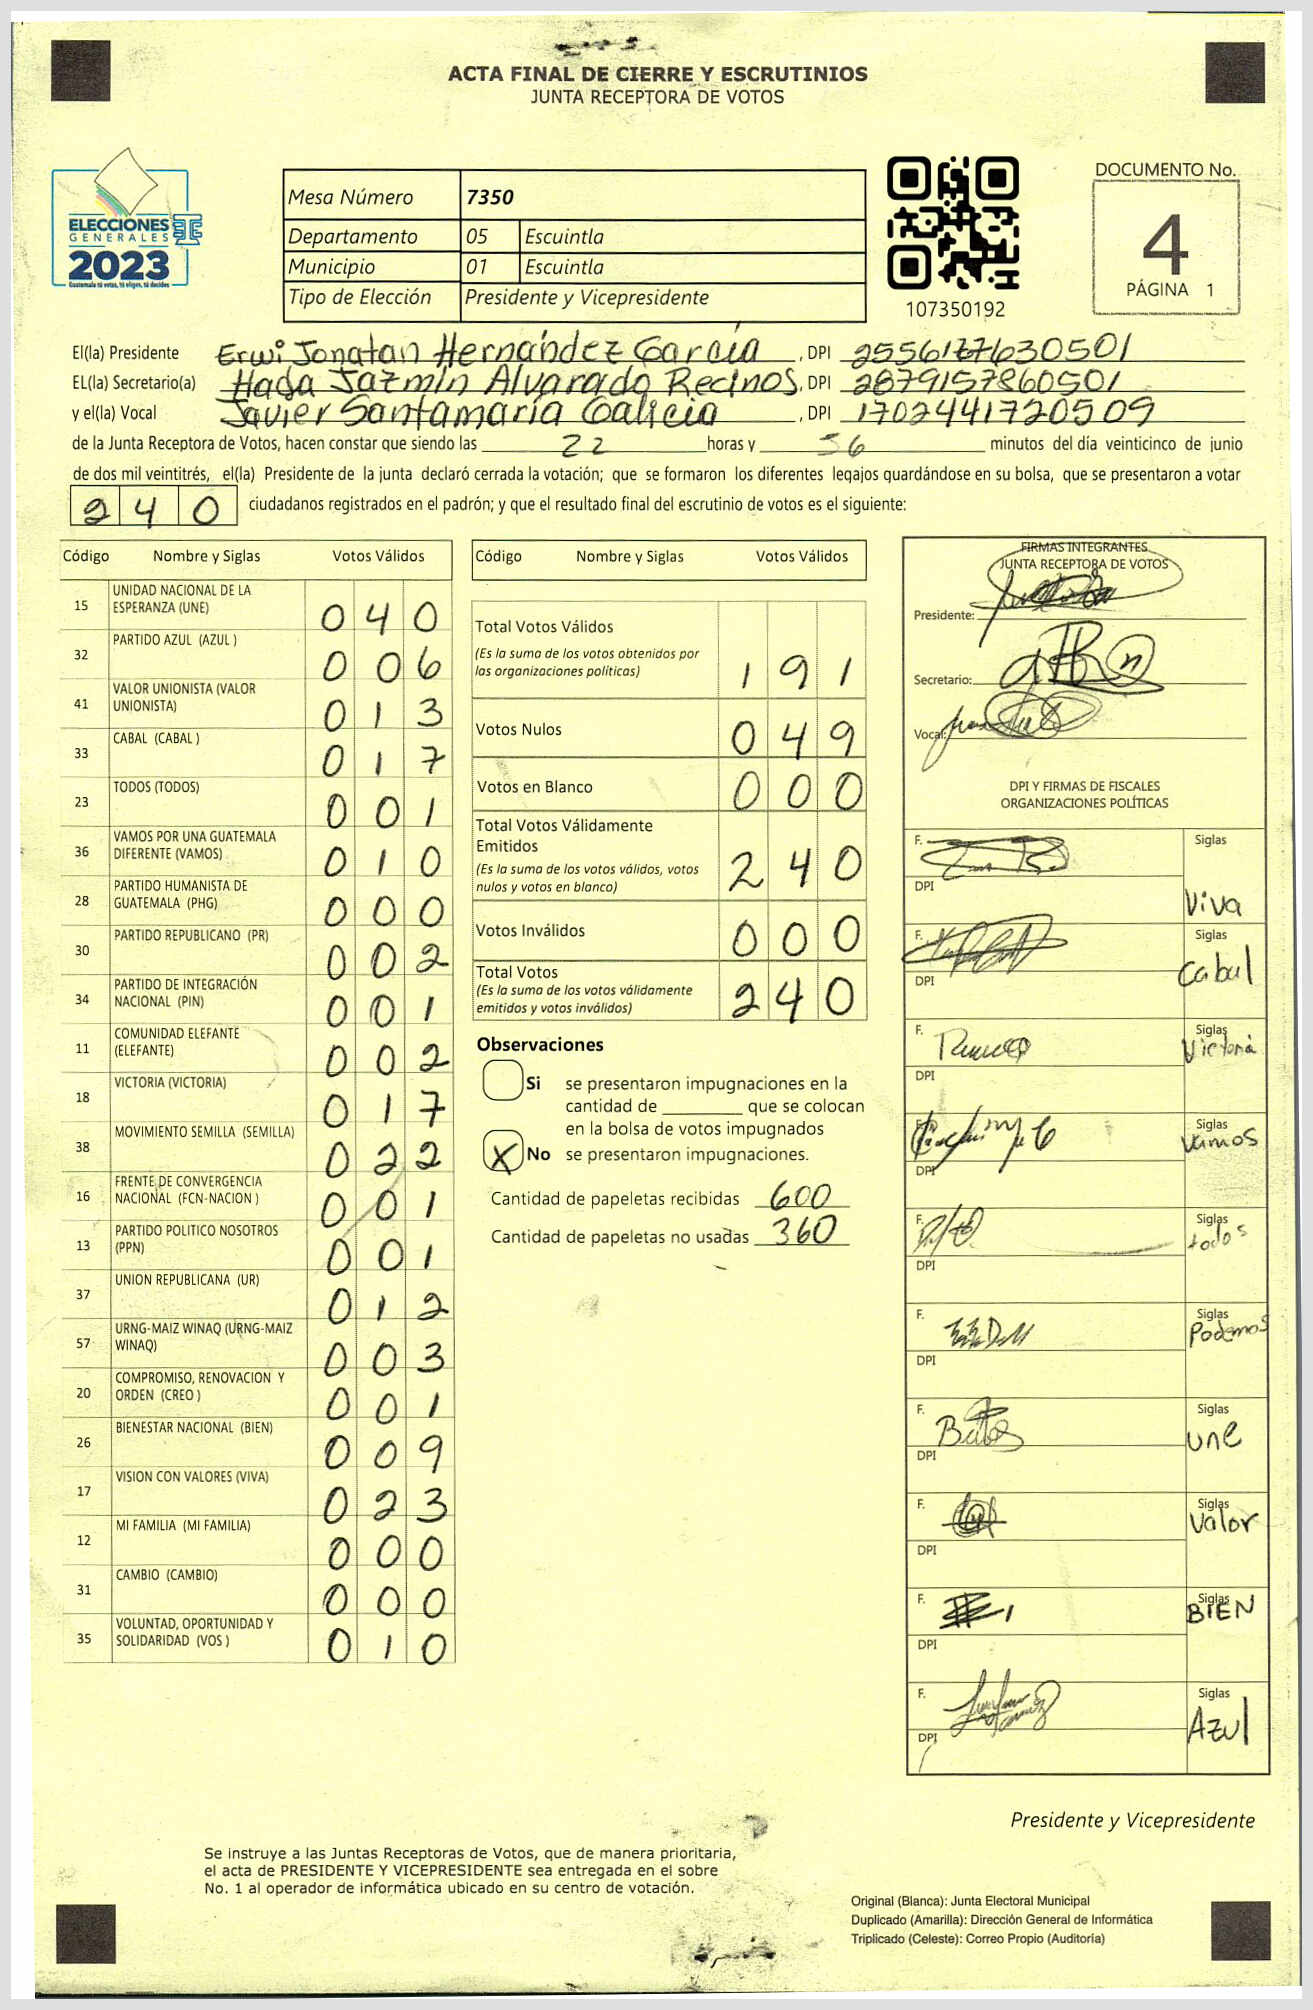 ACTA FINAL DE CIERRE Y ESCRUTINIOS
JUNTA RECEPTORA DE VOTOS
ELECCIONES
GENERALES
2023
Guatemala tú votas, tú eliges, tú decides
Mesa Número 7350
Departamento 05 Escuintla
Municipio 01 Escuintla
Tipo de Elección Presidente y Vicepresidente
107350192
DOCUMENTO No.
4
PÁGINA 1
El(la) Presidente Erwi Jonatan Hernández García, DPI
EL(la) Secretario(a) Hada Jazmín Alvarado Recinos, DPI 2879157860501
y el(la) Vocal Javier Santamaría Galicia, DPI 1702441720509
de la Junta Receptora de Votos, hacen constar que siendo las 22 horas y 56 minutos del día veinticinco de junio
de dos mil veintitrés, el(la) Presidente de la junta declaró cerrada la votación; que se formaron los diferentes legajos guardándose en su bolsa, que se presentaron a votar
240 ciudadanos registrados en el padrón; y que el resultado final del escrutinio de votos es el siguiente:
Código Nombre y Siglas Votos Válidos
15 UNIDAD NACIONAL DE LA ESPERANZA (UNE) 040
32 PARTIDO AZUL (AZUL ) 006
41 VALOR UNIONISTA (VALOR UNIONISTA) 013
33 CABAL (CABAL ) 017
23 TODOS (TODOS) 001
36 VAMOS POR UNA GUATEMALA DIFERENTE (VAMOS) 010
28 PARTIDO HUMANISTA DE GUATEMALA (PHG) 000
30 PARTIDO REPUBLICANO (PR) 002
34 PARTIDO DE INTEGRACIÓN NACIONAL (PIN) 001
11 COMUNIDAD ELEFANTE (ELEFANTE) 002
18 VICTORIA (VICTORIA) 017
38 MOVIMIENTO SEMILLA (SEMILLA) 022
16 FRENTE DE CONVERGENCIA NACIONAL (FCN-NACION ) 001
13 PARTIDO POLITICO NOSOTROS (PPN) 001
37 UNION REPUBLICANA (UR) 012
57 URNG-MAIZ WINAQ (URNG-MAIZ WINAQ) 003
20 COMPROMISO, RENOVACION Y ORDEN (CREO ) 001
26 BIENESTAR NACIONAL (BIEN) 009
17 VISION CON VALORES (VIVA) 023
12 MI FAMILIA (MI FAMILIA) 000
31 CAMBIO (CAMBIO) 000
35 VOLUNTAD, OPORTUNIDAD Y SOLIDARIDAD (VOS ) 010
Código Nombre y Siglas Votos Válidos
Total Votos Válidos 191
(Es la suma de los votos obtenidos por
las organizaciones políticas)
Votos Nulos 049
Votos en Blanco 000
Total Votos Válidamente
Emitidos 240
(Es la suma de los votos válidos, votos
nulos y votos en blanco)
Votos Inválidos 000
Total Votos 240
(Es la suma de los votos válidamente
emitidos y votos inválidos)
Observaciones
Si se presentaron impugnaciones en la
cantidad de ________ que se colocan
en la bolsa de votos impugnados
X No se presentaron impugnaciones.
Cantidad de papeletas recibidas 600
Cantidad de papeletas no usadas 360
FIRMAS INTEGRANTES
JUNTA RECEPTORA DE VOTOS
Presidente:
Secretario:
Vocal:
DPI Y FIRMAS DE FISCALES
ORGANIZACIONES POLÍTICAS
F. Siglas
DPI Viva
F. Siglas
DPI Cabal
F. Siglas
DPI Victoria
F. Siglas
DPI Vamos
F. Siglas
DPI todos
F. Siglas
DPI Podemos
F. Siglas
DPI une
F. Siglas
DPI Valor
F. Siglas
DPI BIEN
F. Siglas
DPI Azul
Presidente y Vicepresidente
Se instruye a las Juntas Receptoras de Votos, que de manera prioritaria,
el acta de PRESIDENTE Y VICEPRESIDENTE sea entregada en el sobre
No. 1 al operador de informática ubicado en su centro de votación.
Original (Blanca): Junta Electoral Municipal
Duplicado (Amarilla): Dirección General de Informática
Triplicado (Celeste): Correo Propio (Auditoría)